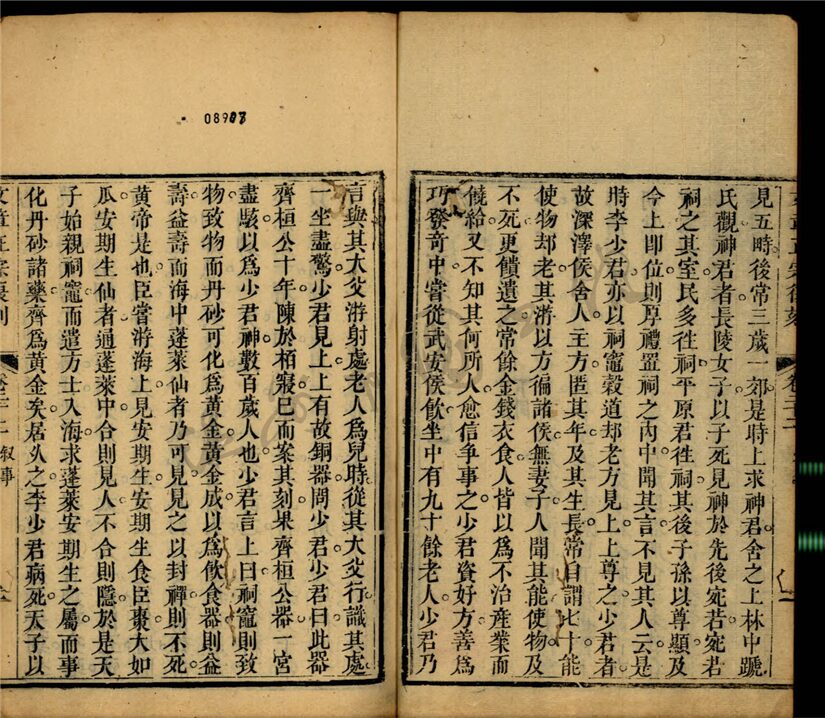 見五時後常三歲一郊是時上求神君舍之上林中蹏
氏觀神君者長陵女子以子死見神於先後宛若宛若
祠之其室民多往祠平原君徃祠其後子孫以尊顯及
今上卽位則厚禮置祠之內中聞其言不見其人云是
時李少君亦以祠竈穀道却老方見上上尊之少君者
故深澤侯舍人主方匿其年及其生長常自謂七十能
使物却老其游以方徧諸侯無妻子人聞其能使物及
不死更饋遺之常餘金錢衣食人皆以爲不治產業而
饒給又不知其何所人愈信爭事之少君資好方善爲
巧發奇中嘗從武安侯飮坐中有九十餘老人少君乃
言與其大父游射處老人爲兒時從其大父行識其處
一坐盡驚少君見上上有故銅器問少君少君曰此器
齊桓公十年陳於栢寢已而案其刻果齊桓公器一宮
盡駭以爲少君神數百歲人也少君言上曰祠竈則致
物致物而丹砂可化爲黃金黃金成以爲飮食器則益
壽益壽而海中蓬萊仙者乃可見見之以封禪則不死
黃帝是也臣嘗游海上見安期生安期生食臣棗大如
瓜安期生仙者通蓬萊中合則見人不合則隱於是天
子始親祠竈而遣方士入海求蓬萊安期生之屬而事
化丹砂諸藥齊爲黃金矣居久之李少君病死天子以
卷二十二 叙事